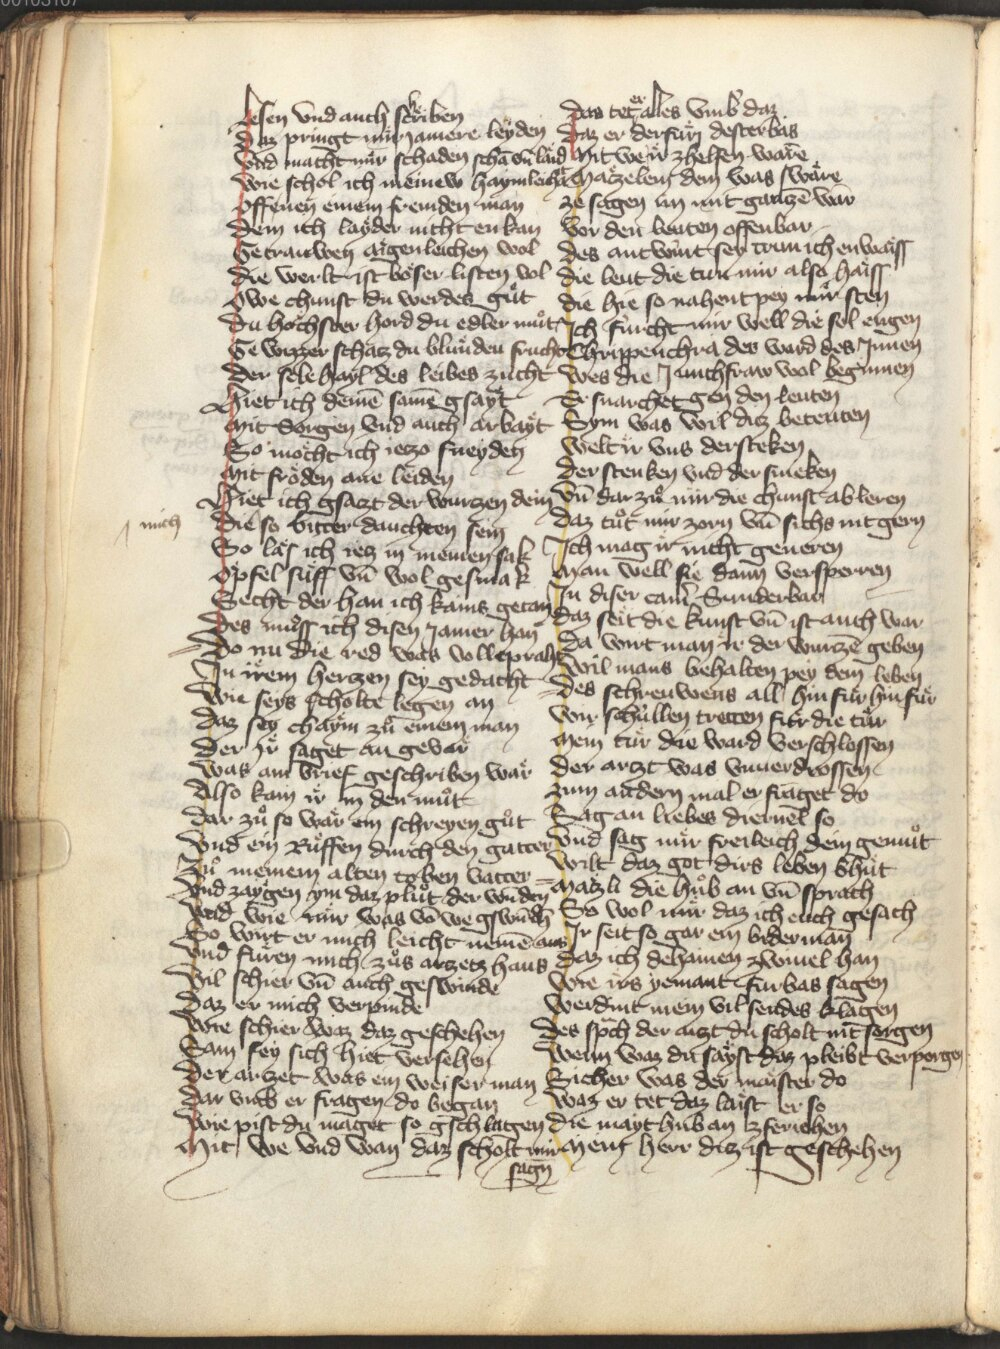 00103107
Lesen vnd auch schriben
Daz pringt mir jamers leyden
Vnd macht mir schaden schā vn̄ laid
Wie schol ich meinew haymleichait
Offenen einem fremden man
Dem ich layder nicht enkan
Getrauwen aigenleichen wol
Die werlt ist böser listen vol
Owe chunst du werdes gůt
Du höchster hord du edler můt
Gewisser schatz du blůnden frucht
Der sele hayl des leibes zucht
Hiet ich deinē samē gsäyt
Mit Sorgen vnd auch arbayt
So möcht ich iezo sneyden
Mit fröden ane leiden
Hiet ich gsazt der wurzen dein
mich
Die so bitter dauchten sein
So läs ich iez in meinen sak
Opfel süss vn̄ wol gesmak
Secht der han ich kains getan
Des můss ich disen Jamer han
Do nu die red was vollepraht
In irem herzen sey gedacht
Wie seys scholte legen an
Daz sey chäm zů einem man
Der ir saget an gevär
Was am brief geschriben wär
Also kam ir in den můt
Dar zů so wär ein schreyen gůt
Vnd ein Rüffen durch den gatter
Zů meinem alten toben vatter
Vnd zaygen ym daz plůt der wunden
Vnd wie mir was vō we gswūdn
So wirt er mich leicht nemē aus
Vnd füren mich zůs arzetz haus
Vil schier vn̄ auch geswinde
Daz er mich verpinde
Wie schier waz daz geschehen
Sam sey sich hiet versehen
Der arzet was ein weiser man
Dar vmb er fragen do began
Wie pist du maget so gschlagen
Mit we vnd wan daz scholt mir
sagn
Das tet er alles vmb daz
Daz er derfür dester bas
Mit wew ir zhelfen wäre
Mäczelein dem was swäre
Ze sagen im mit ganzē war
Vor den leuten offenbar
Des antwurt sey trun ich enwaiss
Die leut die tun mir also haiss
Die hie so nahent pey mir sten
Ich fürcht mir well die sel engen
Chrippenchra der ward des Innen
Wes die Junchfraw wol beginnen
Er snarchet gen den leuten
Sym was wil diz beteuten
Welt ir vns dersteken
Derstenken vnd dersmeken
Vn̄ dar zů mir die chunst ableren
Daz tůt mir zorn vn̄ sichs nit gern
Ich mag ir nicht generen
Man well sie dann versperren
In diser cam̄ Sunderbar
Daz seit die kunst vn̄ ist auch war
Da wirt man ir der wurzē geben
Wil mans behalten pey dem leben
Des schreuwens all hin für hin für
Wir schüllen tretten für die tür
Mein tür die ward verschlossen
Der arzt was vnuerdrossen
Zum andern mal er fraget do
Sag an liebes diernel so
Vnd sag mir freileich dein gemůt
Wilt daz got dirs leben bhüt
Mäczli die hůb an vn̄ sprach
So wol mir daz ich euch gesach
Ir seit so gar ein biderman
Daz ich dehainen zwivel han
Wie irs yemant fürbas sagen
Werdint mein vil sendes klagen
Des sp̄ch der arzt du scholt nit sorgen
Wenn waz du sayst daz pleibt verporgen
Sicher was der maister do
Waz er tet daz laist er so
Die mayt hub an zferiehen
Mein herr diz ist geschehen